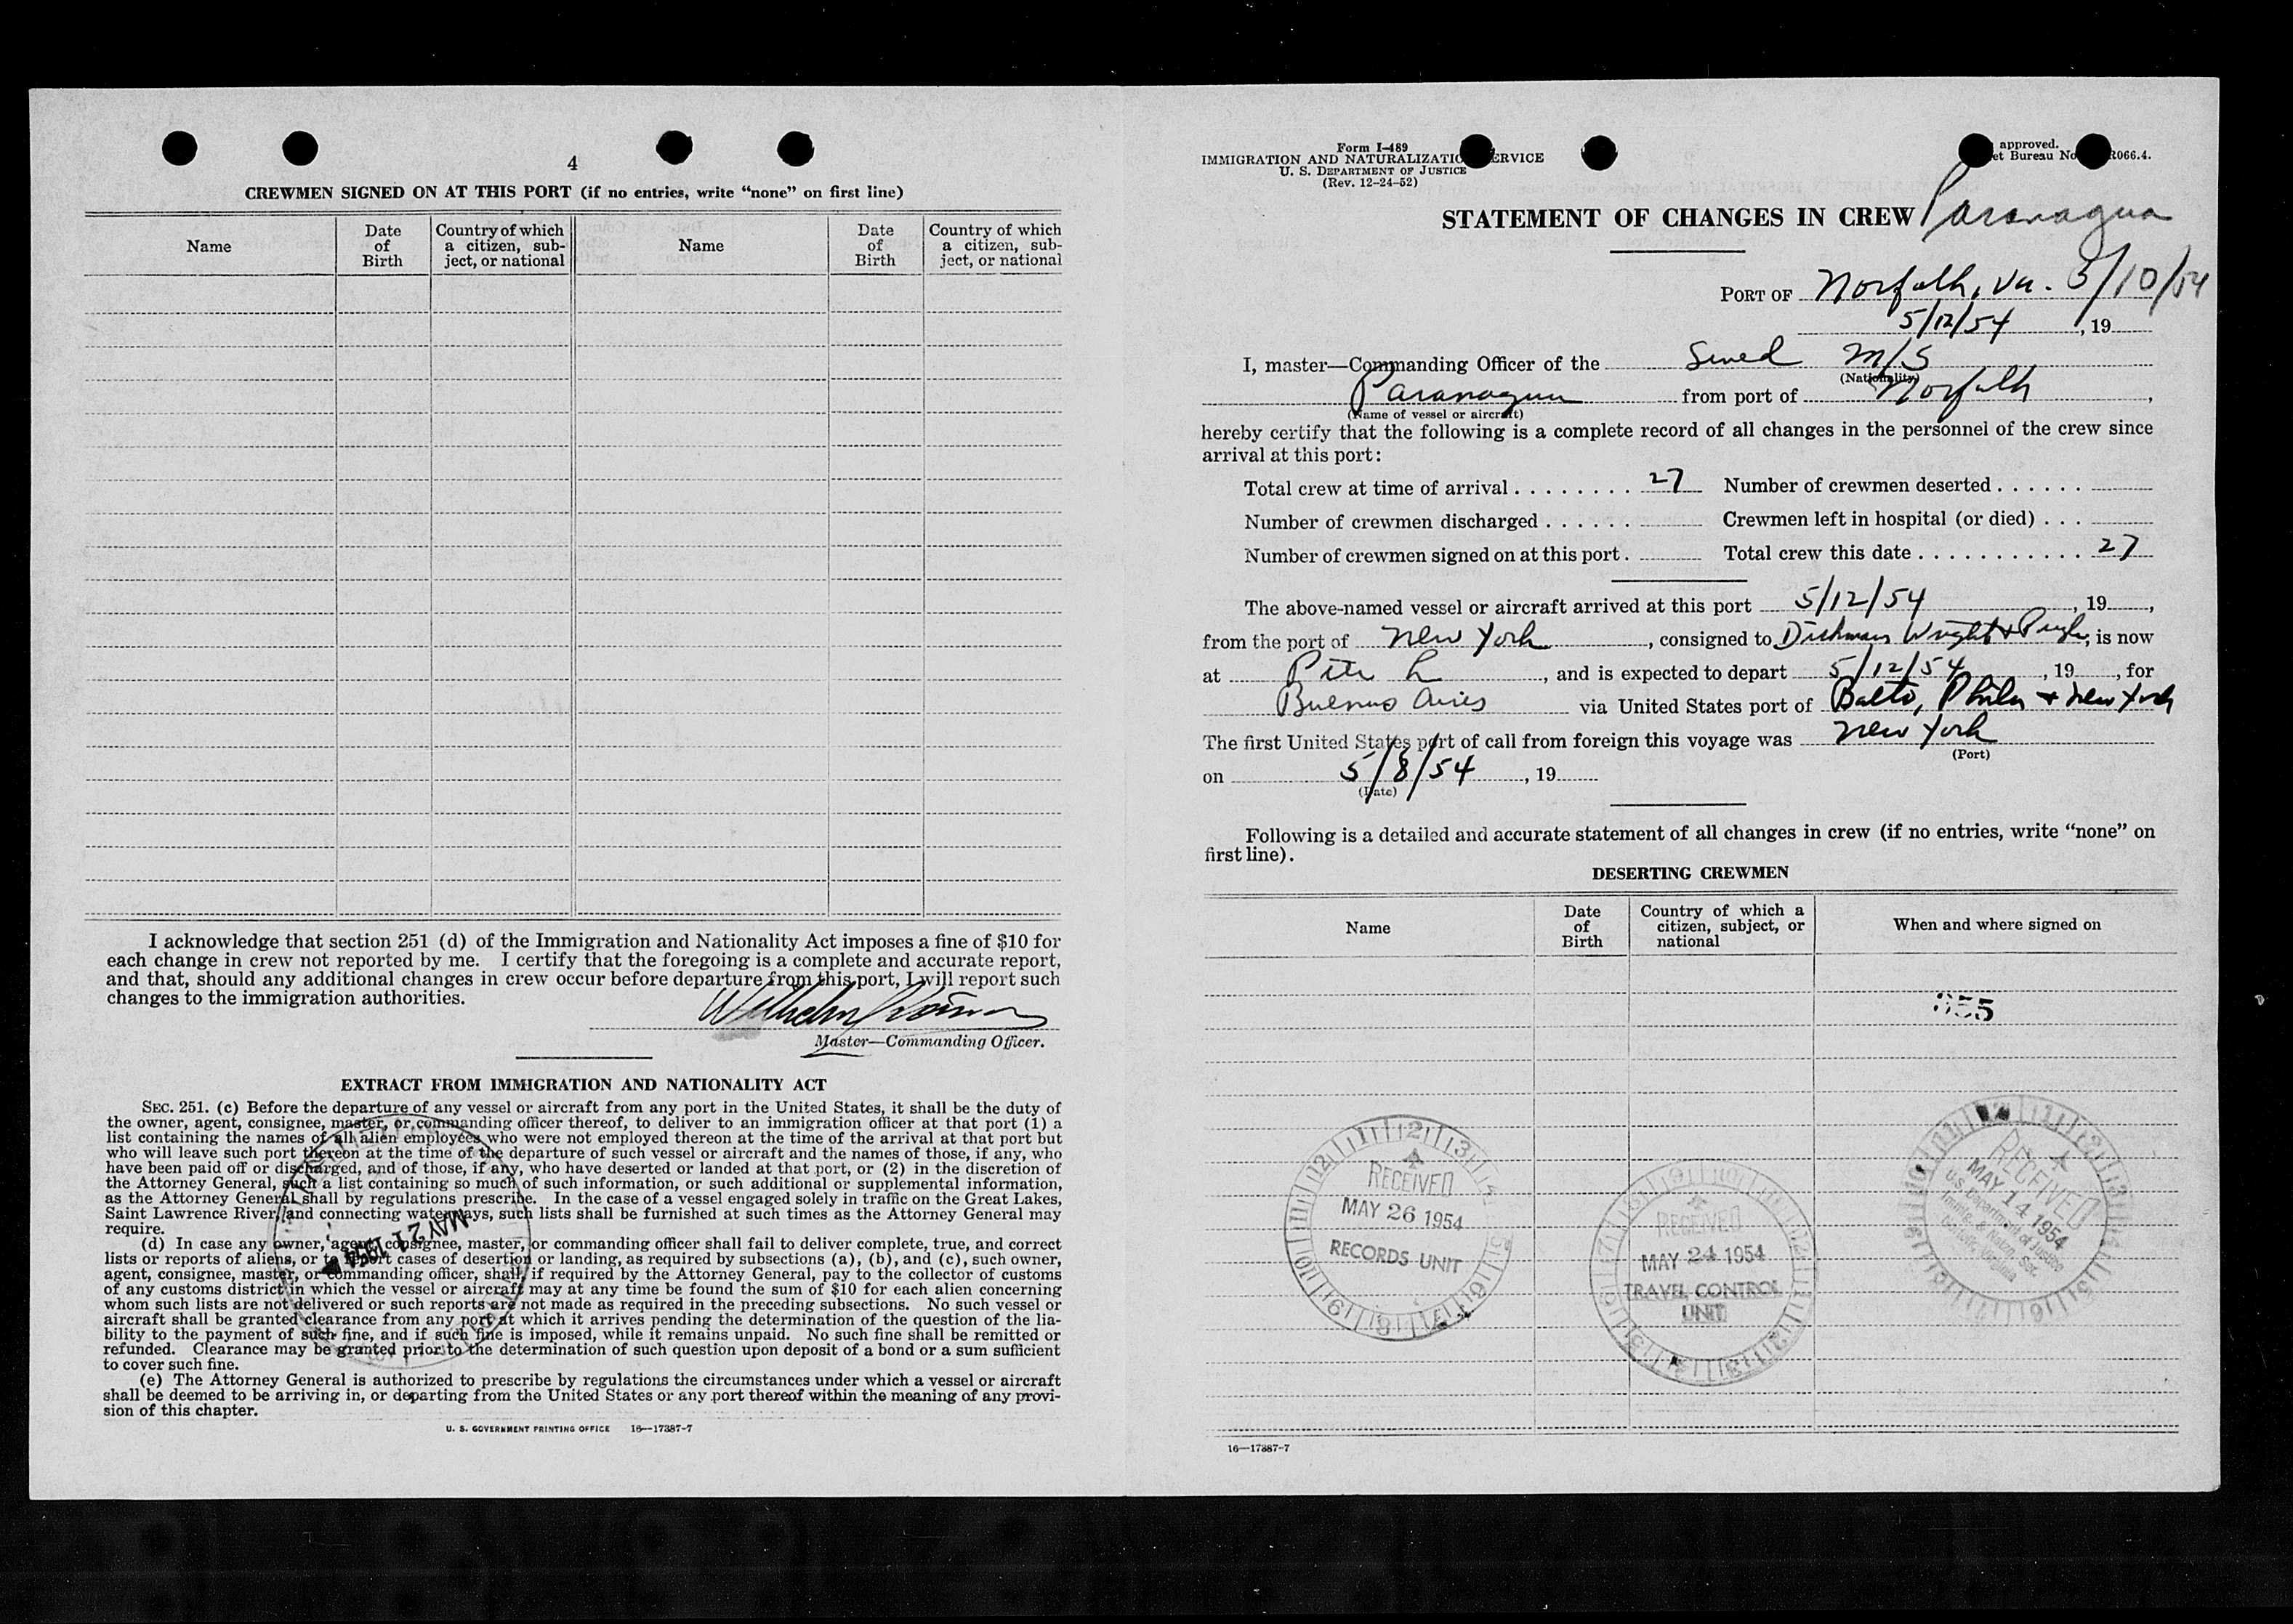 4
CREWMEN SIGNED ON AT THIS PORT (if no entries, write “none” on first line)
Name
Date of Birth
Country of which a citizen, subject, or national
Name
Date of Birth
Country of which a citizen, subject, or national
I acknowledge that section 251 (d) of the Immigration and Nationality Act imposes a fine of $10 for
each change in crew not reported by me. I certify that the foregoing is a complete and accurate report,
and that, should any additional changes in crew occur before departure from this port, I will report such
changes to the immigration authorities.
Wilhelm
Master—Commanding Officer.
EXTRACT FROM IMMIGRATION AND NATIONALITY ACT
SEC. 251. (c) Before the departure of any vessel or aircraft from any port in the United States, it shall be the duty of
the owner, agent, consignee, master, or commanding officer thereof, to deliver to an immigration officer at that port (1) a
list containing the names of all alien employees who were not employed thereon at the time of the arrival at that port but
who will leave such port thereon at the time of the departure of such vessel or aircraft and the names of those, if any, who
have been paid off or discharged, and of those, if any, who have deserted or landed at that port, or (2) in the discretion of
the Attorney General, such a list containing so much of such information, or such additional or supplemental information,
as the Attorney General shall by regulations prescribe. In the case of a vessel engaged solely in traffic on the Great Lakes,
Saint Lawrence River, and connecting waterways, such lists shall be furnished at such times as the Attorney General may
require.
(d) In case any owner, agent, consignee, master, or commanding officer shall fail to deliver complete, true, and correct
lists or reports of aliens, or to report cases of desertion or landing, as required by subsections (a), (b), and (c), such owner,
agent, consignee, master, or commanding officer, shall, if required by the Attorney General, pay to the collector of customs
of any customs district in which the vessel or aircraft may at any time be found the sum of $10 for each alien concerning
whom such lists are not delivered or such reports are not made as required in the preceding subsections. No such vessel or
aircraft shall be granted clearance from any port at which it arrives pending the determination of the question of the lia-
bility to the payment of such fine, and if such fine is imposed, while it remains unpaid. No such fine shall be remitted or
refunded. Clearance may be granted prior to the determination of such question upon deposit of a bond or a sum sufficient
to cover such fine.
(e) The Attorney General is authorized to prescribe by regulations the circumstances under which a vessel or aircraft
shall be deemed to be arriving in, or departing from the United States or any port thereof within the meaning of any provi-
sion of this chapter.
MAY 21 1954
U. S. GOVERNMENT PRINTING OFFICE 16—17387-7
Form I-489
IMMIGRATION AND NATURALIZATIO ERVICE
U. S. DEPARTMENT OF JUSTICE
(Rev. 12-24-52)
approved.
et Bureau No R066.4.
STATEMENT OF CHANGES IN CREW Paranagua
PORT OF Norfolk, Va. 5/10/54
5/12/54, 19
I, master—Commanding Officer of the Swed M/S
(Nationality)
Paranagua from port of Norfolk,
(Name of vessel or aircraft)
hereby certify that the following is a complete record of all changes in the personnel of the crew since
arrival at this port:
Total crew at time of arrival 27 Number of crewmen deserted
Number of crewmen discharged Crewmen left in hospital (or died)
Number of crewmen signed on at this port. Total crew this date 27
The above-named vessel or aircraft arrived at this port 5/12/54, 19,
from the port of New York, consigned to Wright &, is now
at, and is expected to depart 5/12/54, 19, for
Buenos Aires via United States port of Balto, Phila + New York
The first United States port of call from foreign this voyage was New York
(Port)
on 5/8/54, 19
(Date)
Following is a detailed and accurate statement of all changes in crew (if no entries, write “none” on
first line).
DESERTING CREWMEN
Name
Date of Birth
Country of which a citizen, subject, or national
When and where signed on
RECEIVED
MAY 26 1954
RECORDS UNIT
RECEIVED
MAY 24 1954
TRAVEL CONTROL
UNIT
RECEIVED
MAY 14 1954
U.S. Department of Justice
16—17387-7